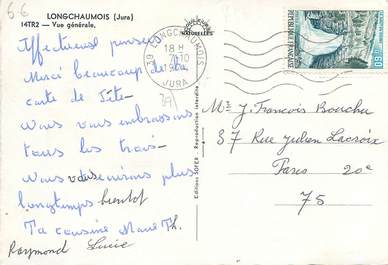 66
LONGCHAUMOIS (Jura)
14TR2 — Vue générale.
NATURELLES
39 LONGCHAUMOIS
18 H
7-10
JURA
REPUBLIQUE FRANÇAISE
Affectueuses pensées
Merci beaucoup de ta
carte de Sète -
Nous vous embrassons
tous les trois -
Nous vous écrirons plus
longtemps bientôt
Ta cousine Marie Th.
Raymond Lucie
39
Editions SOFER - Reproduction interdite
Mr J. François Bouchu
37 Rue Julien Lacroix
Paris 20e
75